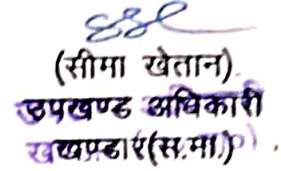 (सीमा खेतान)
उपखण्ड अधिकारी
(स.मा.)